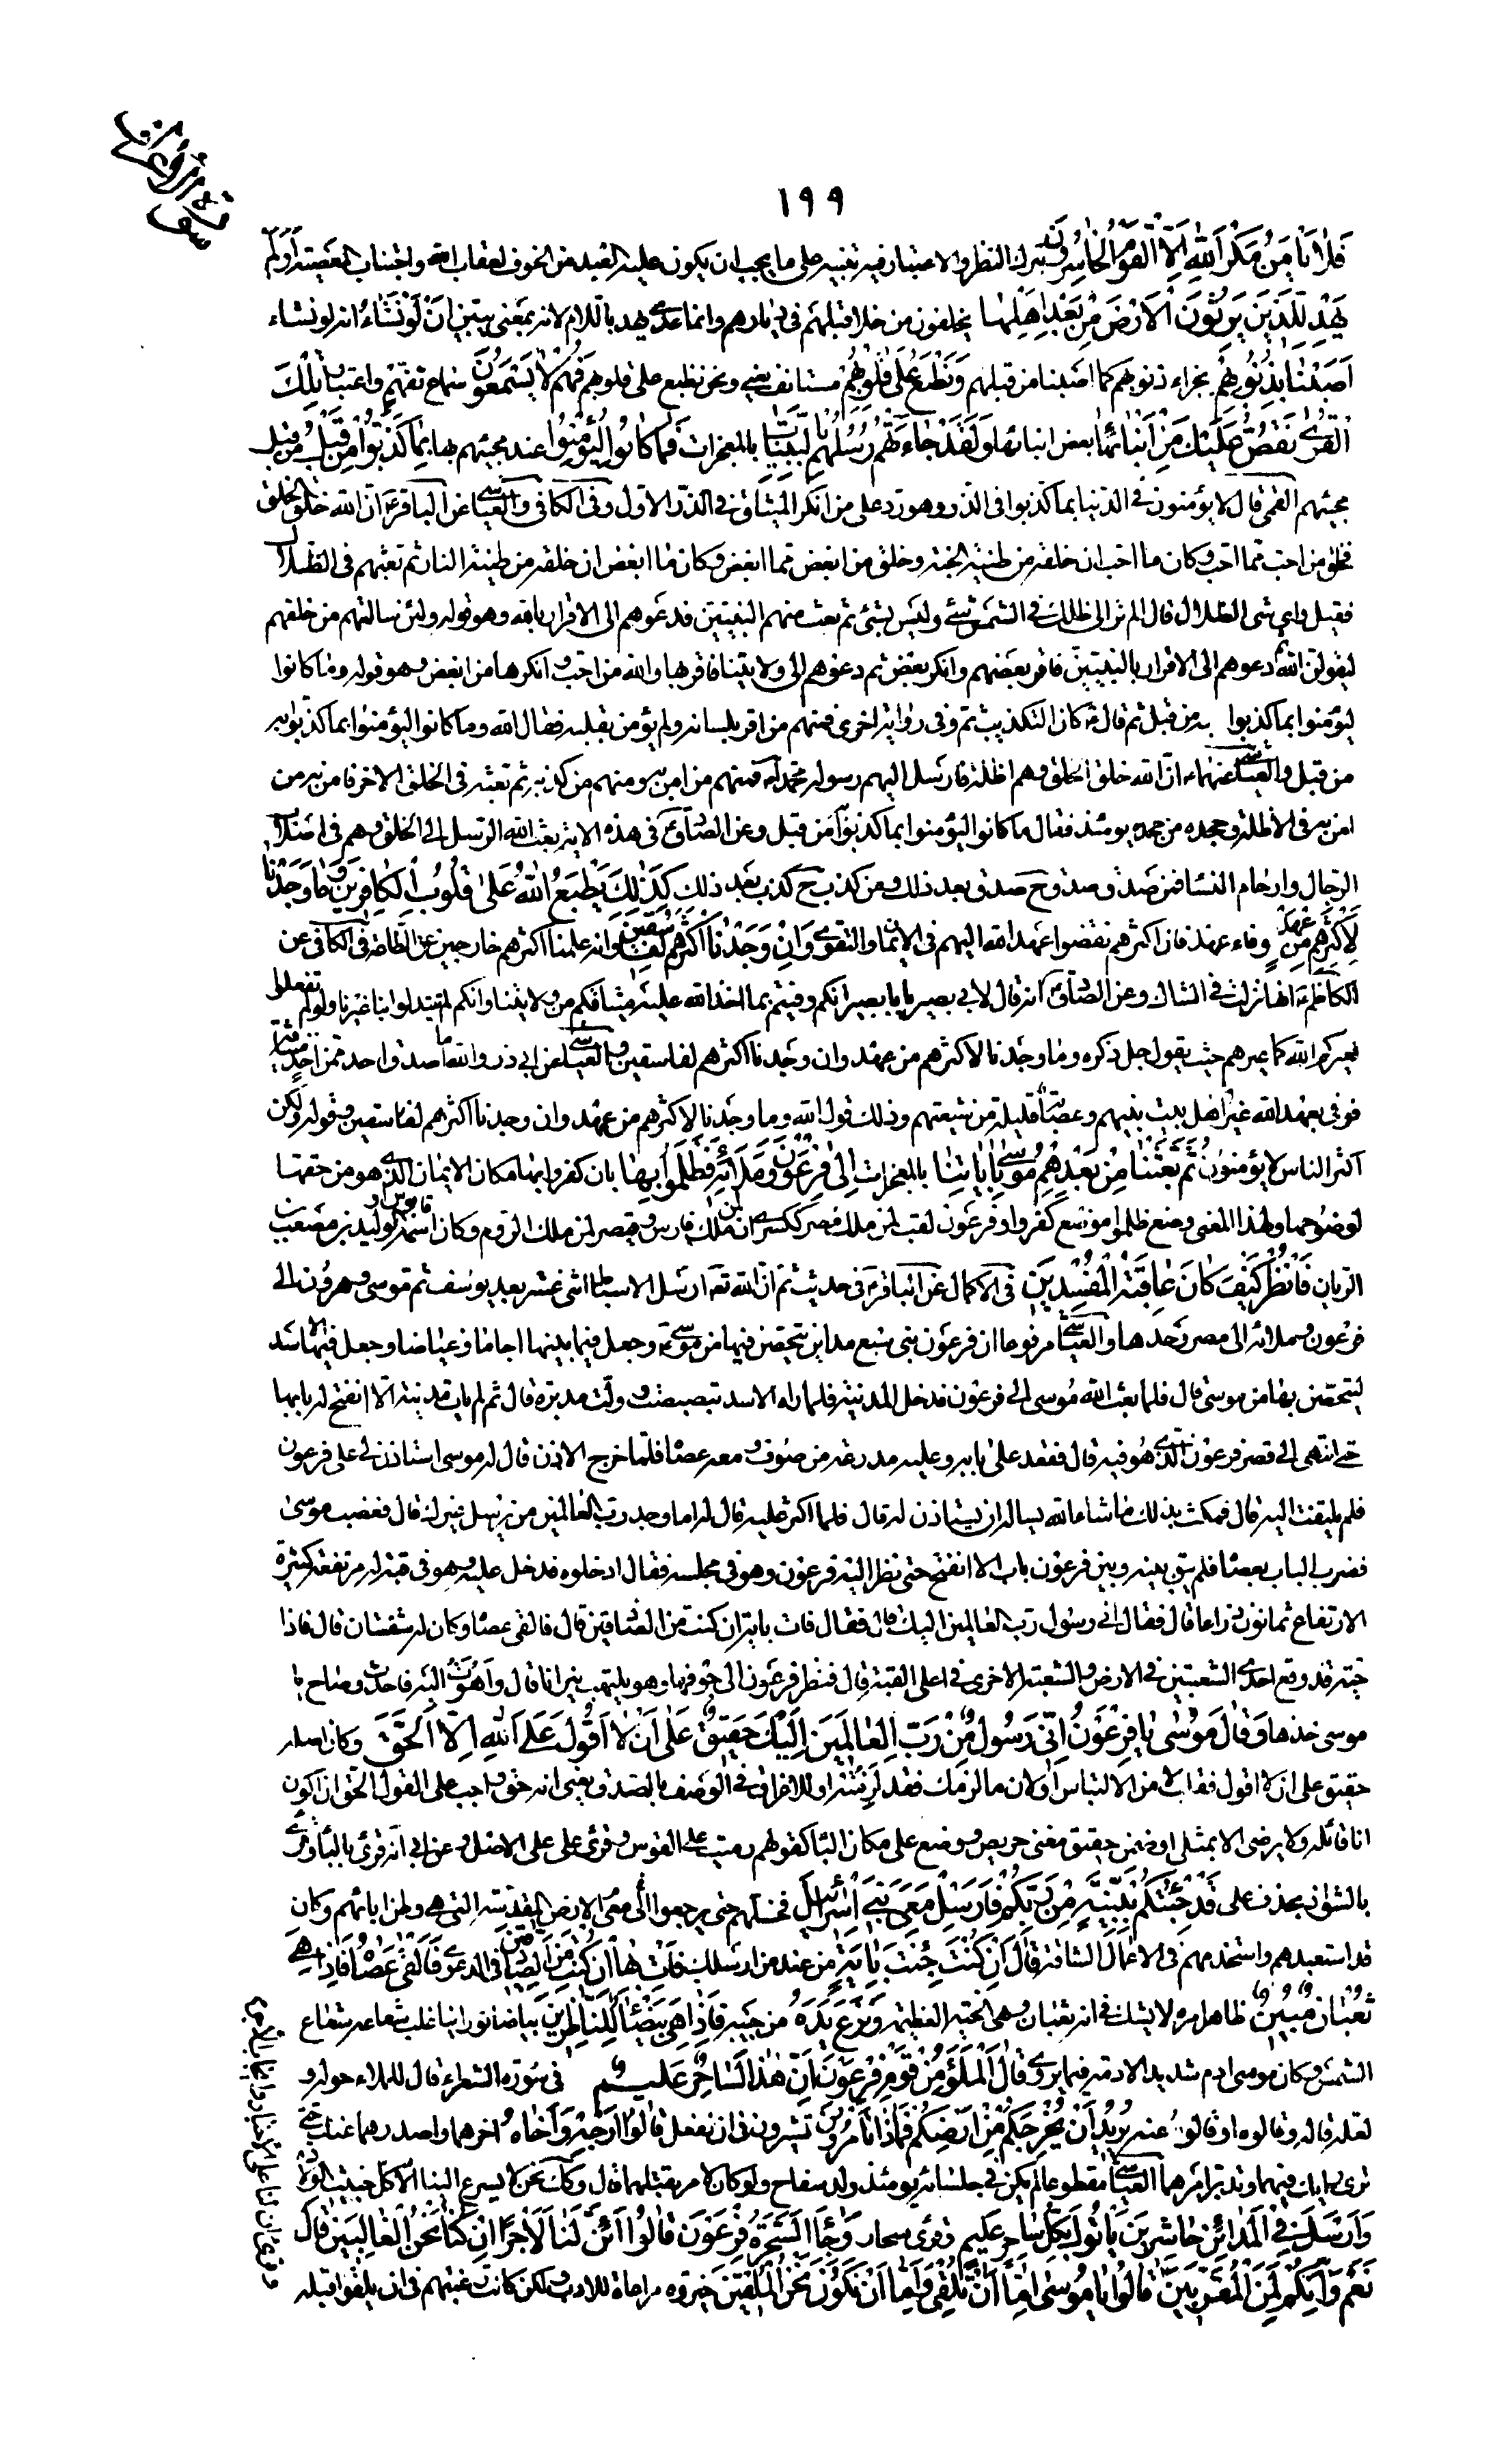 سورة الأعراف
١٩٩
فَلَا يَأْمَنُ مَكْرَ اللَّهِ إِلَّا الْقَوْمُ الْخَاسِرُونَ بترك النظر والاعتبار فيه تنبيه على ما يجب ان يكون عليه العبد من الخوف لعقاب الله واجتناب المعصية أَوَلَمْ
يَهْدِ لِلَّذِينَ يَرِثُونَ الْأَرْضَ مِنْ بَعْدِ أَهْلِهَا يخلفون من خلا قبلهم في ديارهم وانما عدى يهد باللام لانه بمعنى يبين أَنْ لَوْ نَشَاءُ انه لو نشاء
أَصَبْنَاهُمْ بِذُنُوبِهِمْ بجزاء ذنوبهم كما اصبنا من قبلهم وَنَطْبَعُ عَلَى قُلُوبِهِمْ مستانف يعني ونحن نطبع على قلوبهم فَهُمْ لَا يَسْمَعُونَ سماع تفهم واعتبار تِلْكَ
الْقُرَى نَقُصُّ عَلَيْكَ مِنْ أَنْبَائِهَا بعض انبائها وَلَقَدْ جَاءَتْهُمْ رُسُلُهُمْ بِالْبَيِّنَاتِ بالمعجزات فَمَا كَانُوا لِيُؤْمِنُوا عند مجيئهم بها بِمَا كَذَّبُوا مِنْ قَبْلُ من قبل
مجيئهم القمي قال لا يؤمنون في الدنيا بما كذبوا في الذر وهو رد على من انكر الميثاق في الذر الاول وفي الكافي والعياشي عن الباقر ع ان الله خلق الخلق
فخلق من احب مما احب وكان ما احب ان خلقه من طينة الجنة وخلق من ابغض مما ابغض وكان ما ابغض ان خلقه من طينة النار ثم بعثهم في الظلال
فقيل واي شي الظلال قال الم تر الى ظلك في الشمس شي وليس بشئ ثم بعث منهم النبيين فدعوهم الى الاقرار بالله وهو قوله ولئن سالتهم من خلقهم
ليقولن الله ثم دعوهم الى الاقرار بالنبيين فاقر بعضهم وانكر بعض ثم دعوهم الى ولايتنا فاقر بها والله من احب وانكرها من ابغض وهو قوله وما كانوا
ليؤمنوا بما كذبوا به من قبل ثم قال ع كان التكذيب ثم وفي رواية اخرى فمنهم من اقر بلسانه ولم يؤمن بقلبه فقال الله وما كانوا ليؤمنوا بما كذبوا به
من قبل والعياشي عنهما ع ان الله خلق الخلق وهم اظلة فارسل اليهم رسوله محمدا ص فمنهم من امن به ومنهم من كذبه ثم بعثه في الخلق الاخر فامن به من
امن به في الاظلة وجحده من جحد به يومئذ فقال ما كانوا ليؤمنوا بما كذبوا من قبل وعن الصادق ع في هذه الاية بعث الله الرسل الى الخلق وهم في اصلاب
الرجال وارحام النساء فمن صدق ح صدق بعد ذلك ومن كذب ح كذب بعد ذلك كَذَلِكَ يَطْبَعُ اللَّهُ عَلَى قُلُوبِ الْكَافِرِينَ وَمَا وَجَدْنَا
لِأَكْثَرِهِمْ مِنْ عَهْدٍ وفاء عهد فان اكثرهم نقضوا عهد الله اليهم في الايمان والتقوى وَإِنْ وَجَدْنَا أَكْثَرَهُمْ لَفَاسِقِينَ وانه علمنا اكثرهم خارجين عن الطاعة في الكافي عن
الكاظم ع انها نزلت في الشاك وعن الصادق ع انه قال لابي بصير يا با بصير انكم وفيتم بما اخذ الله عليه ميثاقكم من ولايتنا وانكم لم تبدلوا بنا غيرنا ولو لم تفعلوا
لعيركم الله كما عيرهم حيث يقول جل ذكره وما وجدنا لاكثرهم من عهد وان وجدنا اكثرهم لفاسقين والعياشي عن ابي ذر والله ما صدق احد ممن اخذ ميثاقه
فوفى بعهد الله غير اهل بيت نبيهم وعصابة قليلة من شيعتهم وذلك قول الله وما وجدنا لاكثرهم من عهد وان وجدنا اكثرهم لفاسقين وقوله ولكن
اكثر الناس لا يؤمنون ثُمَّ بَعَثْنَا مِنْ بَعْدِهِمْ مُوسَى بِآيَاتِنَا بالمعجزات إِلَى فِرْعَوْنَ وَمَلَئِهِ فَظَلَمُوا بِهَا بان كفروا بها مكان الايمان الذي هو من حقها
لوضوحها ولهذا المعنى وضع ظلموا موضع كفروا وفرعون لقب لمن ملك مصر ككسرى لمن ملك فارس وقيصر لمن ملك الروم وكان اسمه قابوس او الوليد بن مصعب بن
الريان فَانْظُرْ كَيْفَ كَانَ عَاقِبَةُ الْمُفْسِدِينَ في الاكمال عن الباقر ع في حديث ثم ان الله تعه ارسل الاسباط اثنى عشر بعد يوسف ثم موسى وهرون الى
فرعون وملائه الى مصر وحدها والعياشي مرفوعا ان فرعون بنى سبع مداين يتحصن فيها من موسى ع وجعل فيما بينها اجاما وغياضا وجعل فيها الاسد
ليتحصن بها من موسى قال فلما بعث الله موسى الى فرعون فدخل المدينة فلما راه الاسد تبصبصت وولت مدبرة قال ثم لم يات مدينة الا انفتح له بابها
حتى انتهى الى قصر فرعون الذي هو فيه قال فقعد على بابه وعليه مدرعة من صوف ومعه عصا فلما خرج الاذن قال له موسى استاذن لي على فرعون
فلم يلتفت اليه قال فمكث بذلك ما شاء الله يساله ان يستاذن له قال فلما اكثر عليه قال له اما وجد رب العالمين من يرسل غيرك قال فغضب موسى
فضرب الباب بعصا فلم يبق بينه وبين فرعون باب الا انفتح حتى نظر اليه فرعون وهو في مجلسه فقال ادخلوه فدخل عليه وهو في قبة له مرتفعة كثيرة
الارتفاع ثمانون ذراعا قال فقال اني رسول رب العالمين اليك قال فقال فات باية ان كنت من الصادقين قال فالقى عصا وكان له شعبتان قال فاذا
حية قد وقع احدى الشعبتين في الارض والشعبة الاخرى في اعلى القبة قال فنظر فرعون الى جوفها وهو يلتهب نيرانا قال واهوت اليه فاحدث وصاح يا
موسى خذها وَقَالَ مُوسَى يَا فِرْعَوْنُ إِنِّي رَسُولٌ مِنْ رَبِّ الْعَالَمِينَ اليك حَقِيقٌ عَلَى أَنْ لَا أَقُولَ عَلَى اللَّهِ إِلَّا الْحَقَّ وكان اصله
حقيق على ان لا اقول فقلب لا من الالتباس او لان ما لزمك فقد لزمته او للاغراق في الوصف بالصدق يعني انه حق واجب على القول الحق ان اكون
انا قائله ولا يرضى الا بمثلي او ضمن حقيق معنى حريص ووضع على مكان الباء كقولهم رميت على القوس وقرئ علي على الاصل وعن ابي انه قرئ بالباء وقرئ
بالشواذ بحذف على قَدْ جِئْتُكُمْ بِبَيِّنَةٍ مِنْ رَبِّكُمْ فَأَرْسِلْ مَعِيَ بَنِي إِسْرَائِيلَ فخلهم حتى يرجعوا معي الى الارض المقدسة التي هي وطن ابائهم وكان
قد استعبدهم واستخدمهم في الاعمال الشاقة قَالَ إِنْ كُنْتَ جِئْتَ بِآيَةٍ من عند من ارسلك فَأْتِ بِهَا إِنْ كُنْتَ مِنَ الصَّادِقِينَ في الدعوى فَأَلْقَى عَصَاهُ فَإِذَا هِيَ
ثُعْبَانٌ مُبِينٌ ظاهر امره لا يشك في انه ثعبان وهي الحية العظيمة وَنَزَعَ يَدَهُ من جيبه فَإِذَا هِيَ بَيْضَاءُ لِلنَّاظِرِينَ بياضا نورانيا غلب شعاعه شعاع
الشمس وكان موسى ادم شديد الادمة فيما يروى قَالَ الْمَلَأُ مِنْ قَوْمِ فِرْعَوْنَ إِنَّ هَذَا لَسَاحِرٌ عَلِيمٌ في سورة الشعراء قال للملاء حوله و
لعله قاله وقالوه او قالوا عنه يُرِيدُ أَنْ يُخْرِجَكُمْ مِنْ أَرْضِكُمْ فَمَاذَا تَأْمُرُونَ تشيرون في ان نفعل قَالُوا أَرْجِهْ وَأَخَاهُ اخرهما واصدرهما عنك حتى
ترى رايك فيهما وتدبر امرهما العياشي مقطوعا لم يكن في جلسائه يومئذ ولد سفاح ولو كان لامر بقتلهما قال وكك نحن لا يسرع الينا الا كل خبيث الولادة
وَأَرْسِلْ فِي الْمَدَائِنِ حَاشِرِينَ يَأْتُوكَ بِكُلِّ سَاحِرٍ عَلِيمٍ وقرئ سحار وَجَاءَ السَّحَرَةُ فِرْعَوْنَ قَالُوا أَئِنَّ لَنَا لَأَجْرًا إِنْ كُنَّا نَحْنُ الْغَالِبِينَ قَالَ
نَعَمْ وَإِنَّكُمْ لَمِنَ الْمُقَرَّبِينَ قَالُوا يَا مُوسَى إِمَّا أَنْ تُلْقِيَ وَإِمَّا أَنْ نَكُونَ نَحْنُ الْمُلْقِينَ خيروه مراعاة للادب ولكن كانت رغبتهم في ان يلقوا قبله